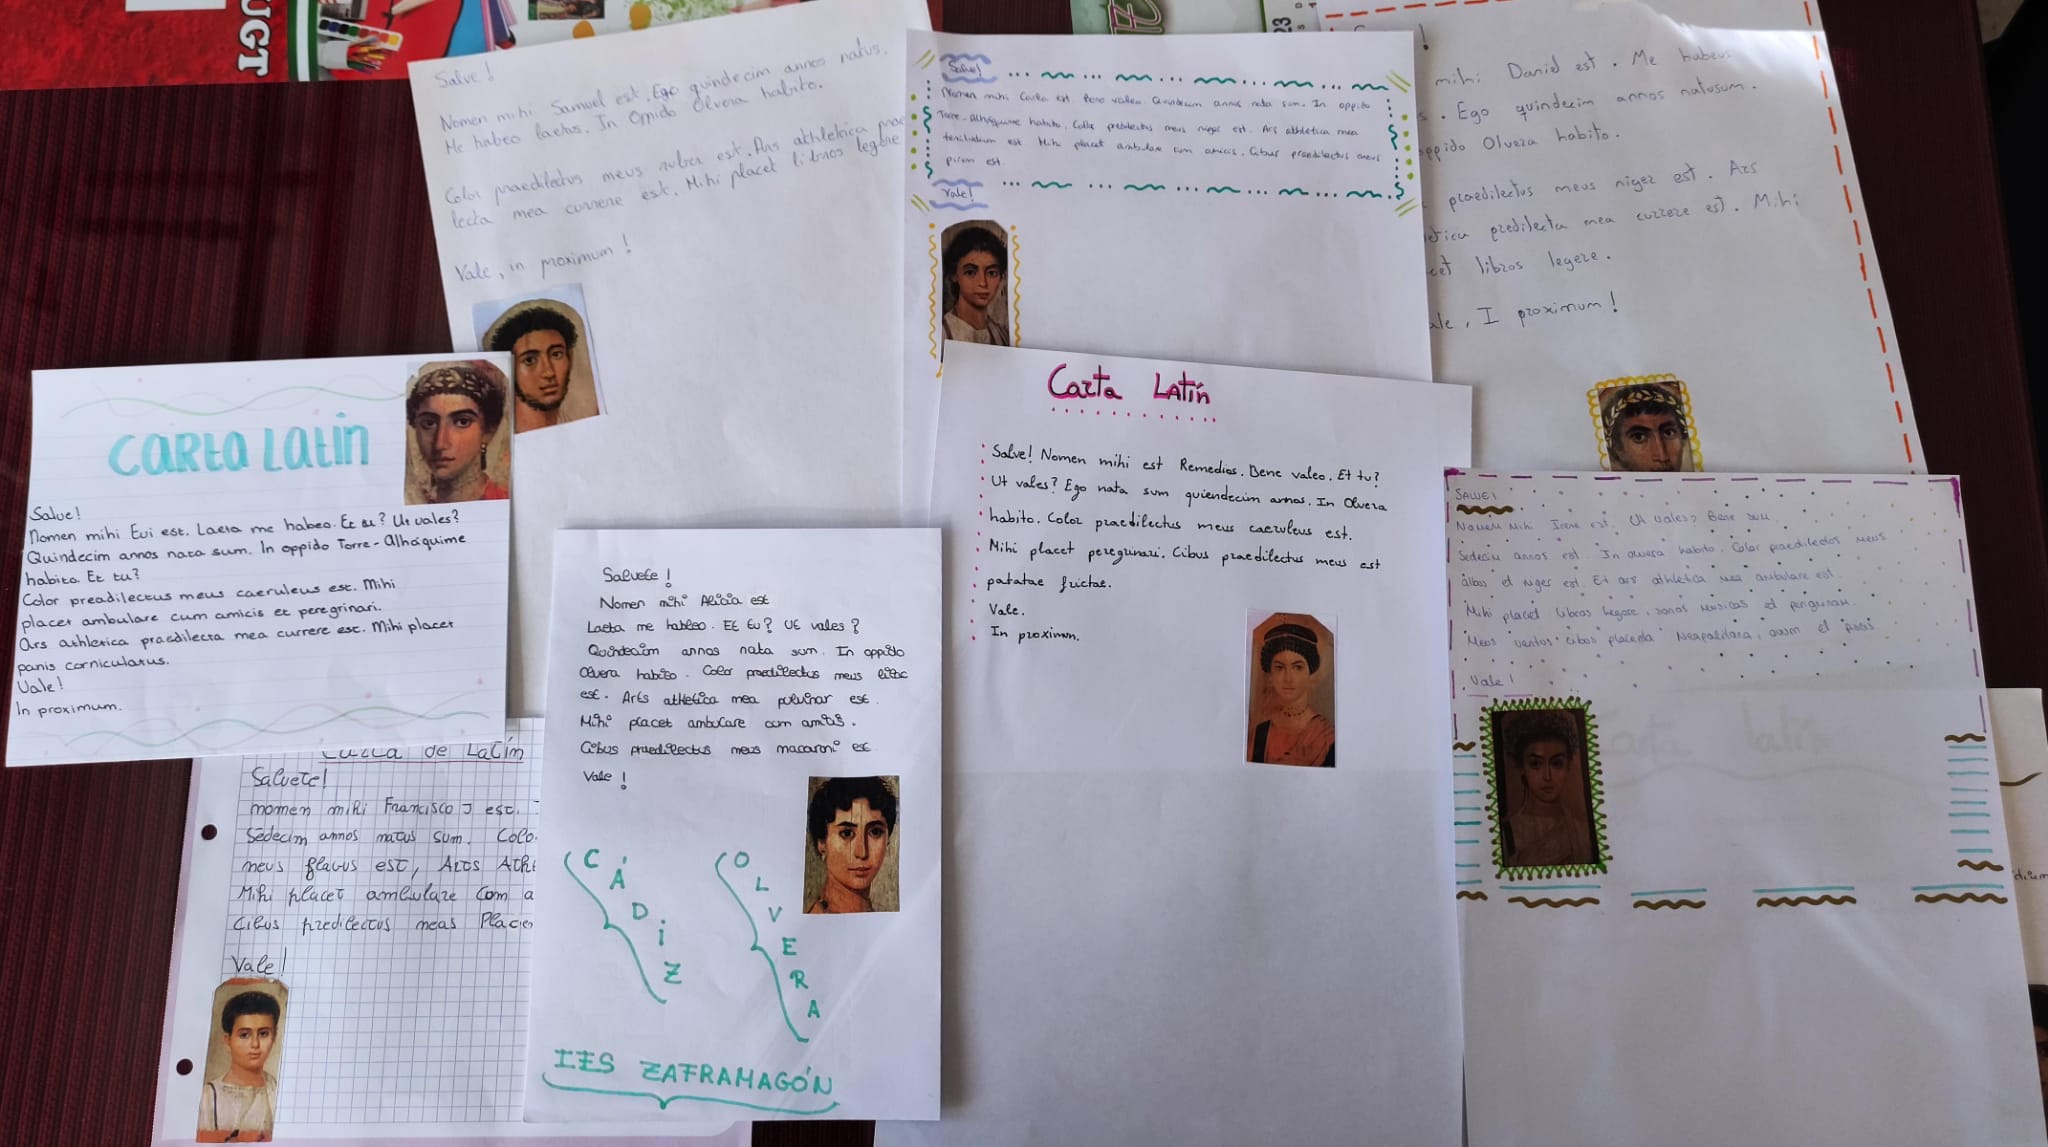 UGT
23
Salve!
Nomen mihi Samuel est. Ego quindecim annos natus.
Me habeo laetus. In Oppido Olvera habito.
Color praedilectus meus ruber est. Ars athletica prae
lecta mea currere est. Mihi placet libros legere
Vale, in proximum!
Salve!
Nomen mihi Carla est Bene valeo. Quindecim annos nata sum. In oppido
Torre-Alháquime habito. Color predilectus meus niger est. Ars athletica mea
est Mihi placet ambulare cum amicis. Cibus praedilectus meus
est
Vale!
!
mihi Daniel est. Me habeus
s. Ego quindecim annos natusum.
oppido Olvera habito.
praedilectus meus niger est. Ars
letica predilecta mea currere est. Mihi
cet libros legere.
ale, I proximum!
CARTA LATÍN
Salve!
Nomen mihi Evi est. Laeta me habeo. Et tu? Ut vales?
Quindecim annos nata sum. In oppido Torre-Alháquime
habita. Et tu?
Color preadilectus meus caeruleus est. Mihi
placet ambulare cum amicis et peregrinari.
Ars athletica praedilecta mea currere est. Mihi placet
panis corniculatus.
Vale!
In proximum.
Carta LATín
Salve! Nomen mihi est Remedios. Bene valeo. Et tu?
Ut vales? Ego nata sum quiendecim annos. In Olvera
habito. Color praedilectus meus caeruleus est.
Mihi placet peregrinari. Cibus praedilectus meus est
patatae frictae.
Vale.
In proximum.
SALVE!
Nomen Mihi Irene est. Ut vales? Bene sum
Sedecim annos est. In olvera habito. Color praedilectos meus
albus et niger est. Et ars athletica mea ambulare est.
Mihi placet libros legere, sonos musicas et
Meus cibos placenta Neapolitana, et
Vale!
Carta latín
Salvete!
Nomen mihi Alicia est
Laeta me habeo. Et tu? Ut vales?
Quindecim annos nata sum. In oppido
Olvera habito. Color praedilectus meus lilac
est. Arts athletica mea pulvinar est.
Mihi placet ambulare cum amicis.
Cibus praedilectus meus macaroni est
Vale!
CÁDIZ
OLVERA
IES ZAFRAMAGÓN
Carta de Latín
Salvete!
nomen mihi Francisco J est.
Sedecim annos natus sum. Colo
meus flavus est, Arts Athe
Mihi placet ambulare com a
Cibus predilectus meas Placen
Vale!